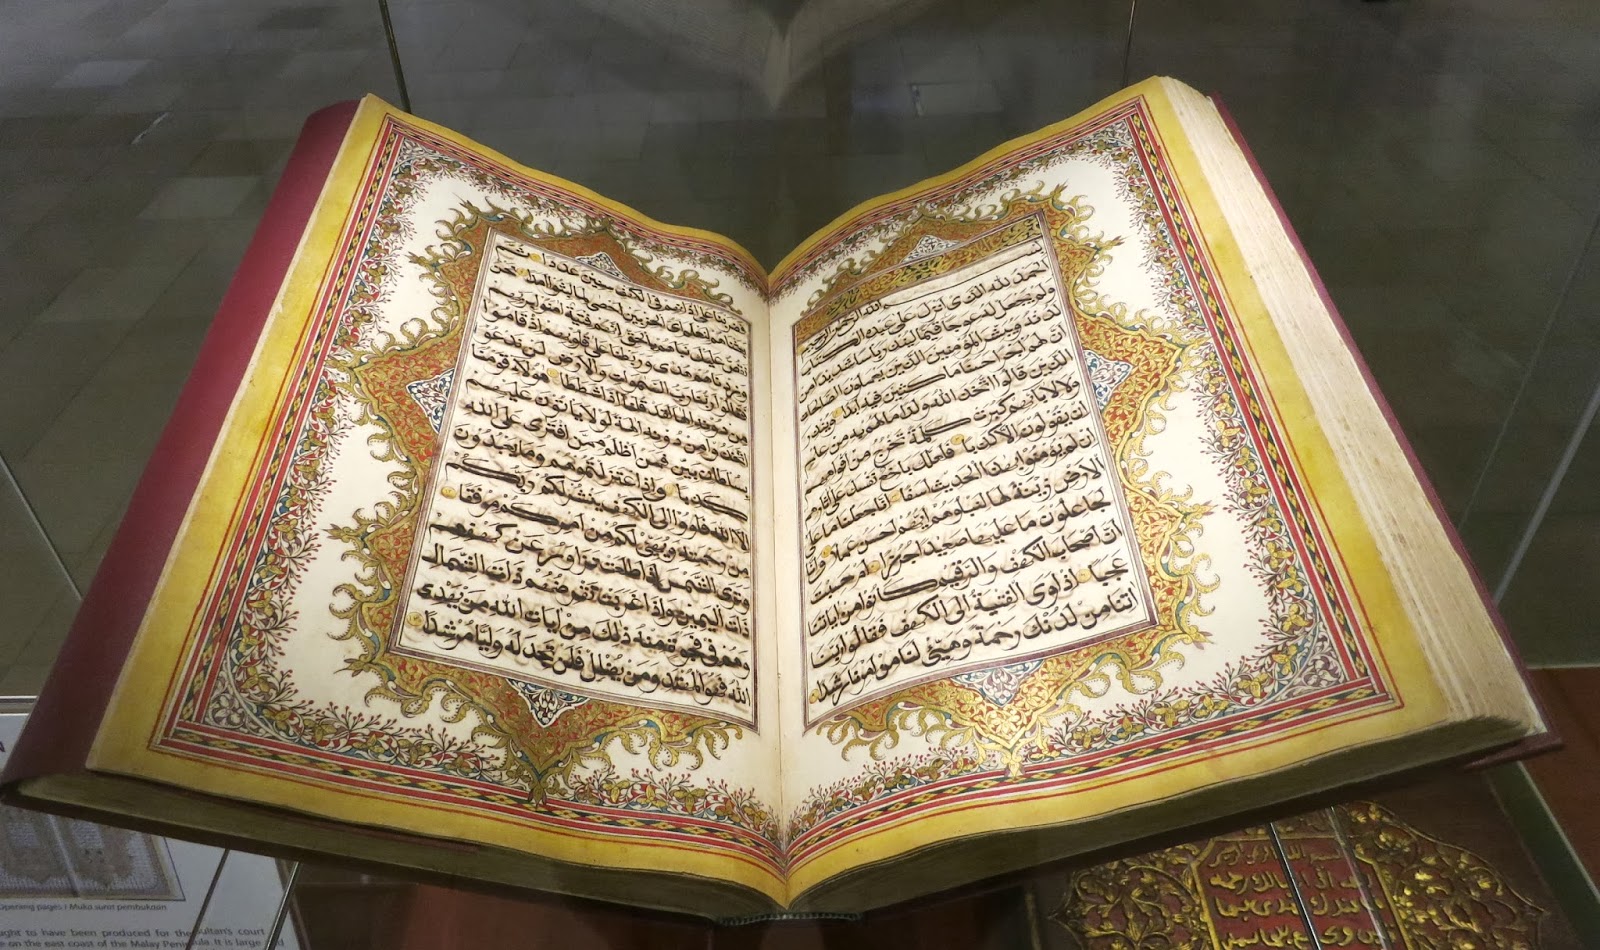 بسم الله الرحمن الرحيم
الحمد لله الذي انزل على عبده الكتاب
ولم يجعل له عوجا قيما لينذر باسا شديدا من
لدنه ويبشر المؤمنين الذين يعملون الصالحات
ان لهم اجرا حسنا ماكثين فيه ابدا وينذر
الذين قالوا اتخذ الله ولدا ما لهم به من علم
ولا لابائهم كبرت كلمة تخرج من افواههم
ان يقولون الا كذبا فلعلك باخع نفسك على اثارهم
ان لم يؤمنوا بهذا الحديث اسفا انا جعلنا ما على
الارض زينة لها لنبلوهم ايهم احسن عملا وانا
لجاعلون ما عليها صعيدا جرزا ام حسبت
ان اصحاب الكهف والرقيم كانوا من اياتنا
عجبا اذ اوى الفتية الى الكهف فقالوا ربنا
اتنا من لدنك رحمة وهيئ لنا من امرنا رشدا
فضربنا على اذانهم في الكهف سنين عددا ثم
بعثناهم لنعلم اي الحزبين احصى لما لبثوا امدا نحن
نقص عليك نباهم بالحق انهم فتية امنوا بربهم
وزدناهم هدى وربطنا على قلوبهم اذ قاموا
فقالوا ربنا رب السموات والارض لن ندعو
من دونه الها لقد قلنا اذا شططا هؤلاء قومنا
اتخذوا من دونه الهة لولا ياتون عليهم
بسلطان بين فمن اظلم ممن افترى على الله
كذبا واذ اعتزلتموهم وما يعبدون
الا الله فاووا الى الكهف ينشر لكم ربكم
من رحمته ويهيئ لكم من امركم مرفقا
وترى الشمس اذا طلعت تزاور عن كهفهم
ذات اليمين واذا غربت تقرضهم ذات الشمال
وهم في فجوة منه ذلك من ايات الله من يهد
الله فهو المهتد ومن يضلل فلن تجد له وليا مرشدا
Opening pages / Muka surat pembukaan
to have been produced for the sultan's court
on the east coast of the Malay Peninsula. It is large